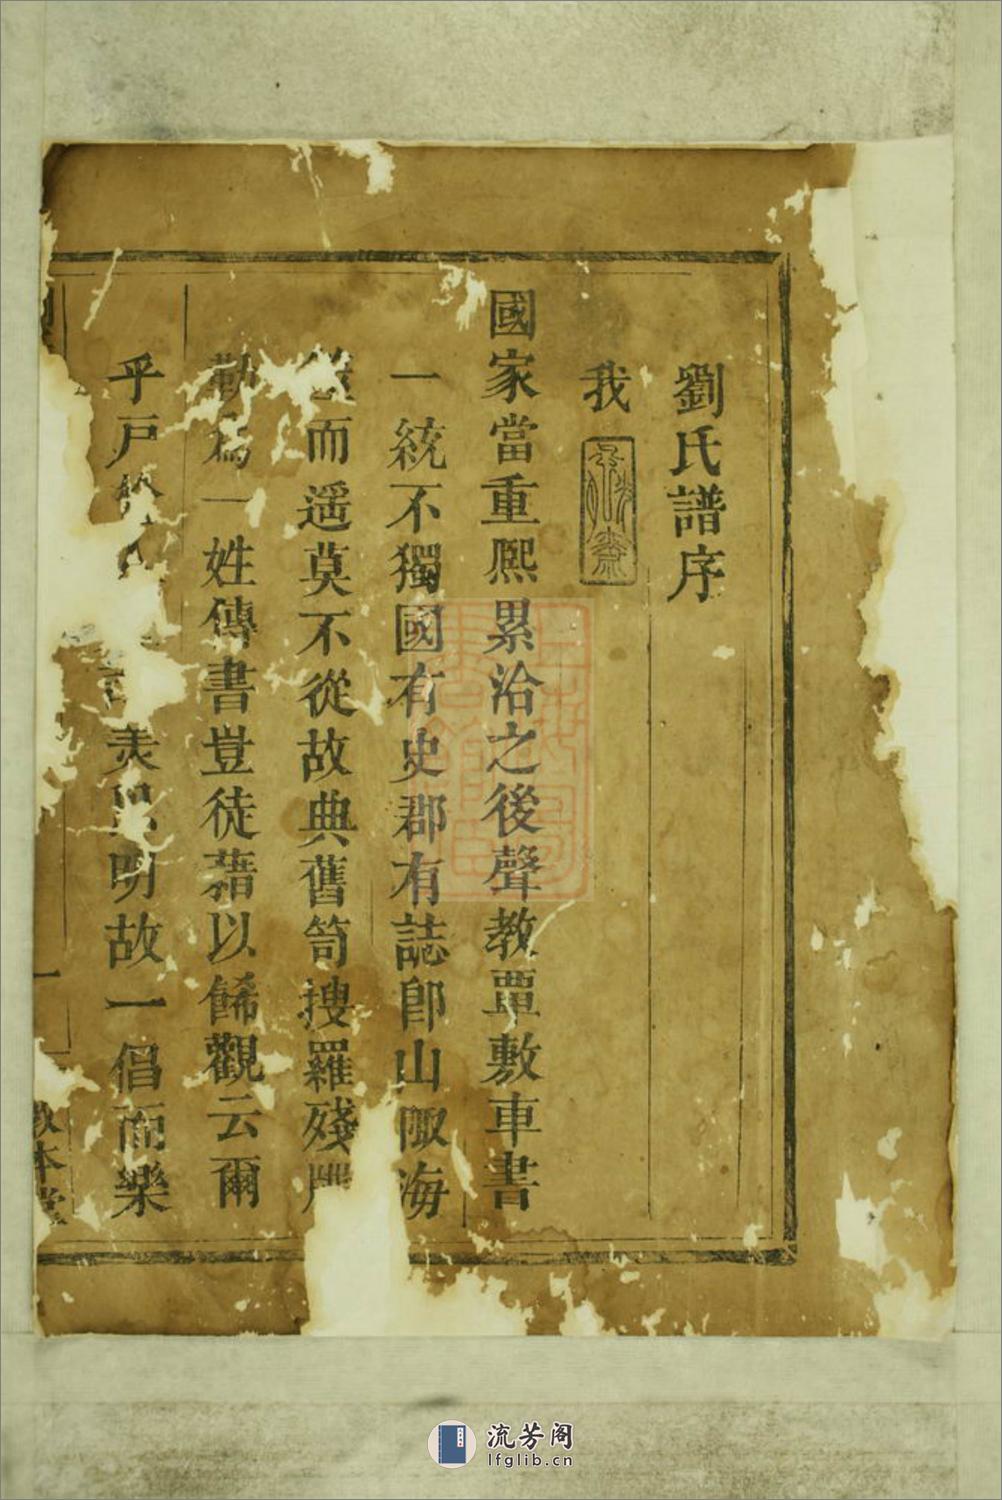 劉氏譜序
我
國家當重熙累洽之後聲教覃敷車書
一統不獨國有史郡有誌即山陬海
而遥莫不從故典舊笥搜羅殘
勒為一姓傳書豈徒藉以餙觀云爾
乎戶 美 明故一倡而樂
一
敦本堂
上海圖書館藏
流芳阁
lfglib.cn